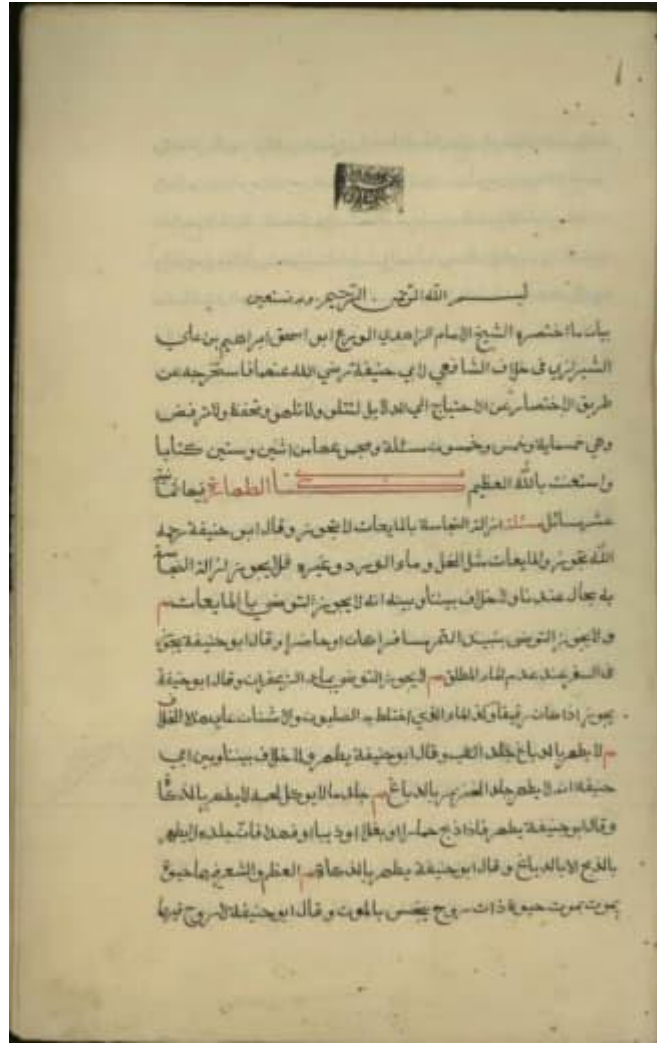 بســـــم الله الرحمن الرحيم وبه نستعين
بيان ما اختصره الشيخ الامام الزاهد الورع ابو اسحق ابراهيم بن علي
الشيرازي في خلاف الشافعي لابي حنيفة رضي الله عنهما فاستخرجه عن
طريق الاختصار عن الاحتياج الي الدلايل لتتلي ولا تلهي وتحفظ ولا ترفض
وهي خمسماية وخمس وخمسون مسئلة ومجموعها من اثنين وستين كتابا
واستعنت بالله العظيم كتاب الطهارة فيها
عشر مسائل مسئلة ازالة النجاسة بالمايعات لا يجوز وقال ابو حنيفة رحمه
الله يجوز والمايعات مثل الخل وماء الورد وغيره فلا يجوز ازالة النجاسة
به بحال عندنا ولا خلاف بيننا وبينه انه لا يجوز التوضي بالمايعات م
ولا يجوز التوضي بنبيذ التمر مسافرا كان او حاضرا وقال ابو حنيفة يجوز
في السفر عند عدم الماء المطلق م لا يجوز التوضي بماء الزعفران وقال ابو حنيفة
يجوز اذا كان رقيقا وكذا الماء الذي اختلط به الصابون والاشنان علي هذا الخلاف
م لا يطهر بالدباغ جلد الكلب وقال ابو حنيفة يطهر ولا خلاف بيننا وبين ابي
حنيفة انه لا يطهر جلد الخنزير بالدباغ م جلد ما لا يوكل لحمه لا يطهر بالذكاة
وقال ابو حنيفة يطهر فاذا ذبح حمارا او بغلا او ذيبا او فهدا فان جلده لا يطهر
بالذبح الا بالدباغ وقال ابو حنيفة يطهر بالذكاة م العظم والشعر فيها حيوة
يموت بموت حيوة ذات روح ينجس بالموت وقال ابو حنيفة لا روح فيها